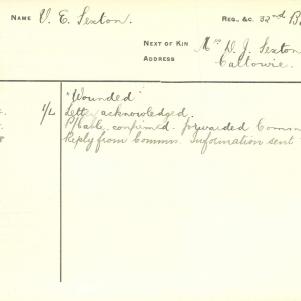 NAME V. E. Sexton REG., &C. 32nd B
NEXT OF KIN Mrs D. J. Sexton
ADDRESS Caltowie.
"Wounded"
1/L Letter acknowledged.
P/Cable confirmed. forwarded Comm
Reply from Commn. Information sent